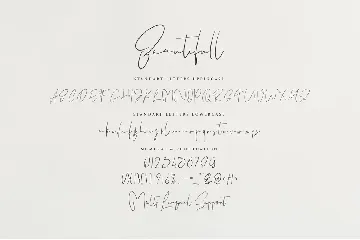 Beautifull
STANDART LETTERS UPPERCASE
ABCDEFGHIJKLMNOPQRSTUVWXYZ
STANDART LETTERS LOWERCASE
abcdefghijklmnopqrstuvwxyz
0123456789
Multi Lingual Support